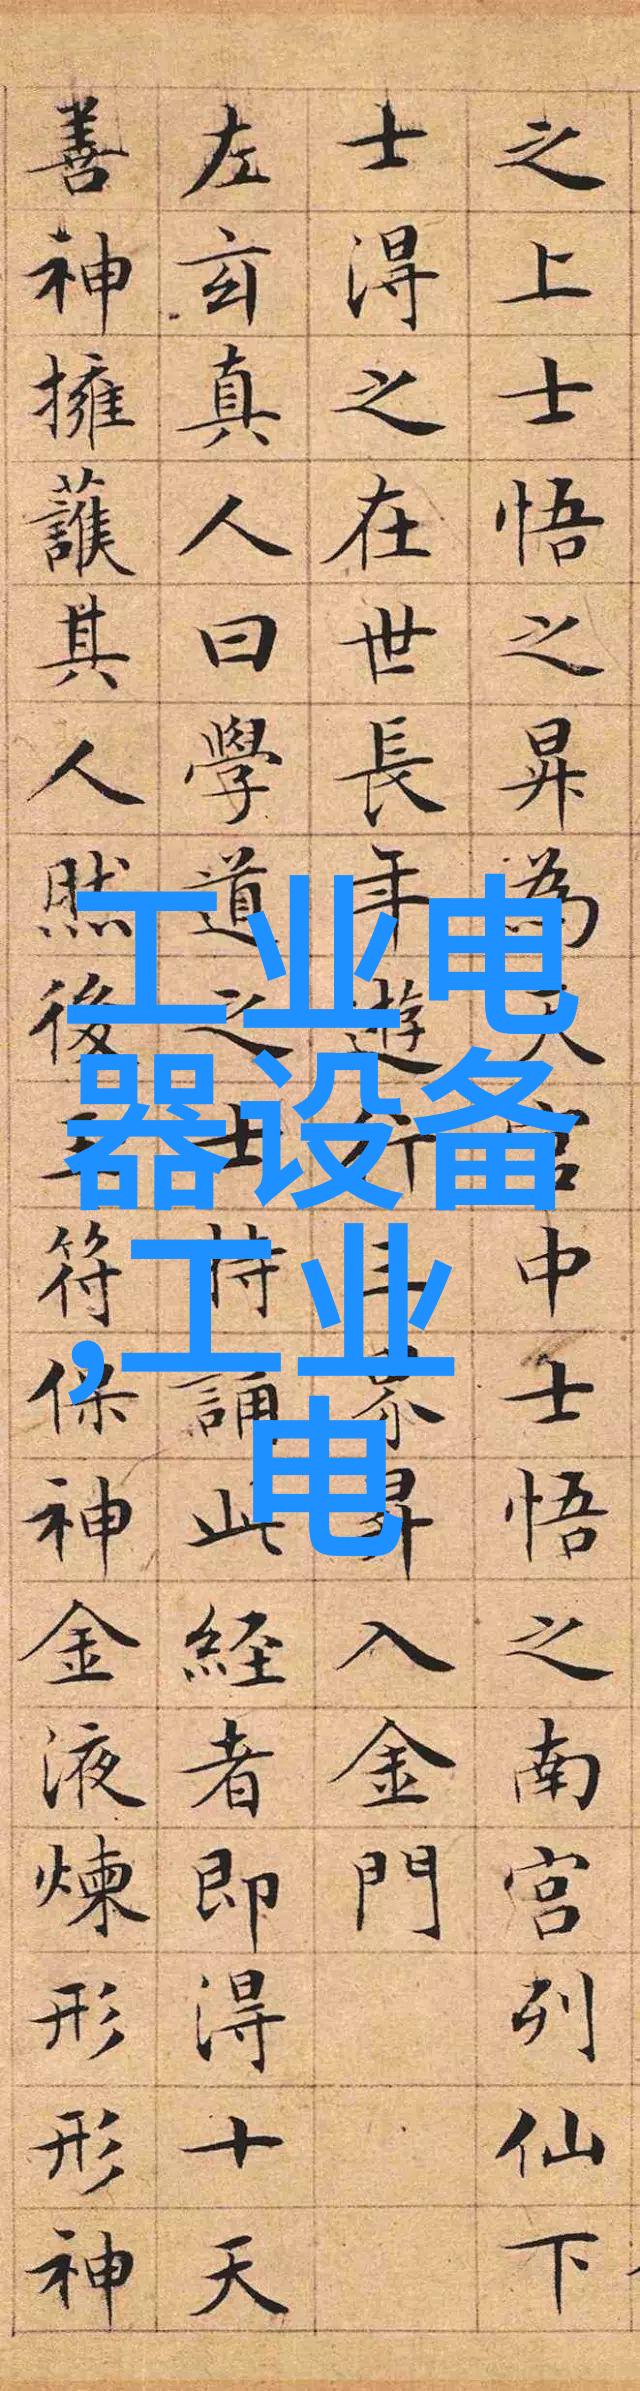 之上士悟之昇為天宮中士悟之南宮列仙下
士得之在世長年遊行三界昇入金門
左玄真人曰學道之士持誦此經者即得十天
善神擁護其人然後玉符保神金液煉形形神
工业电
器设备
,工业
电